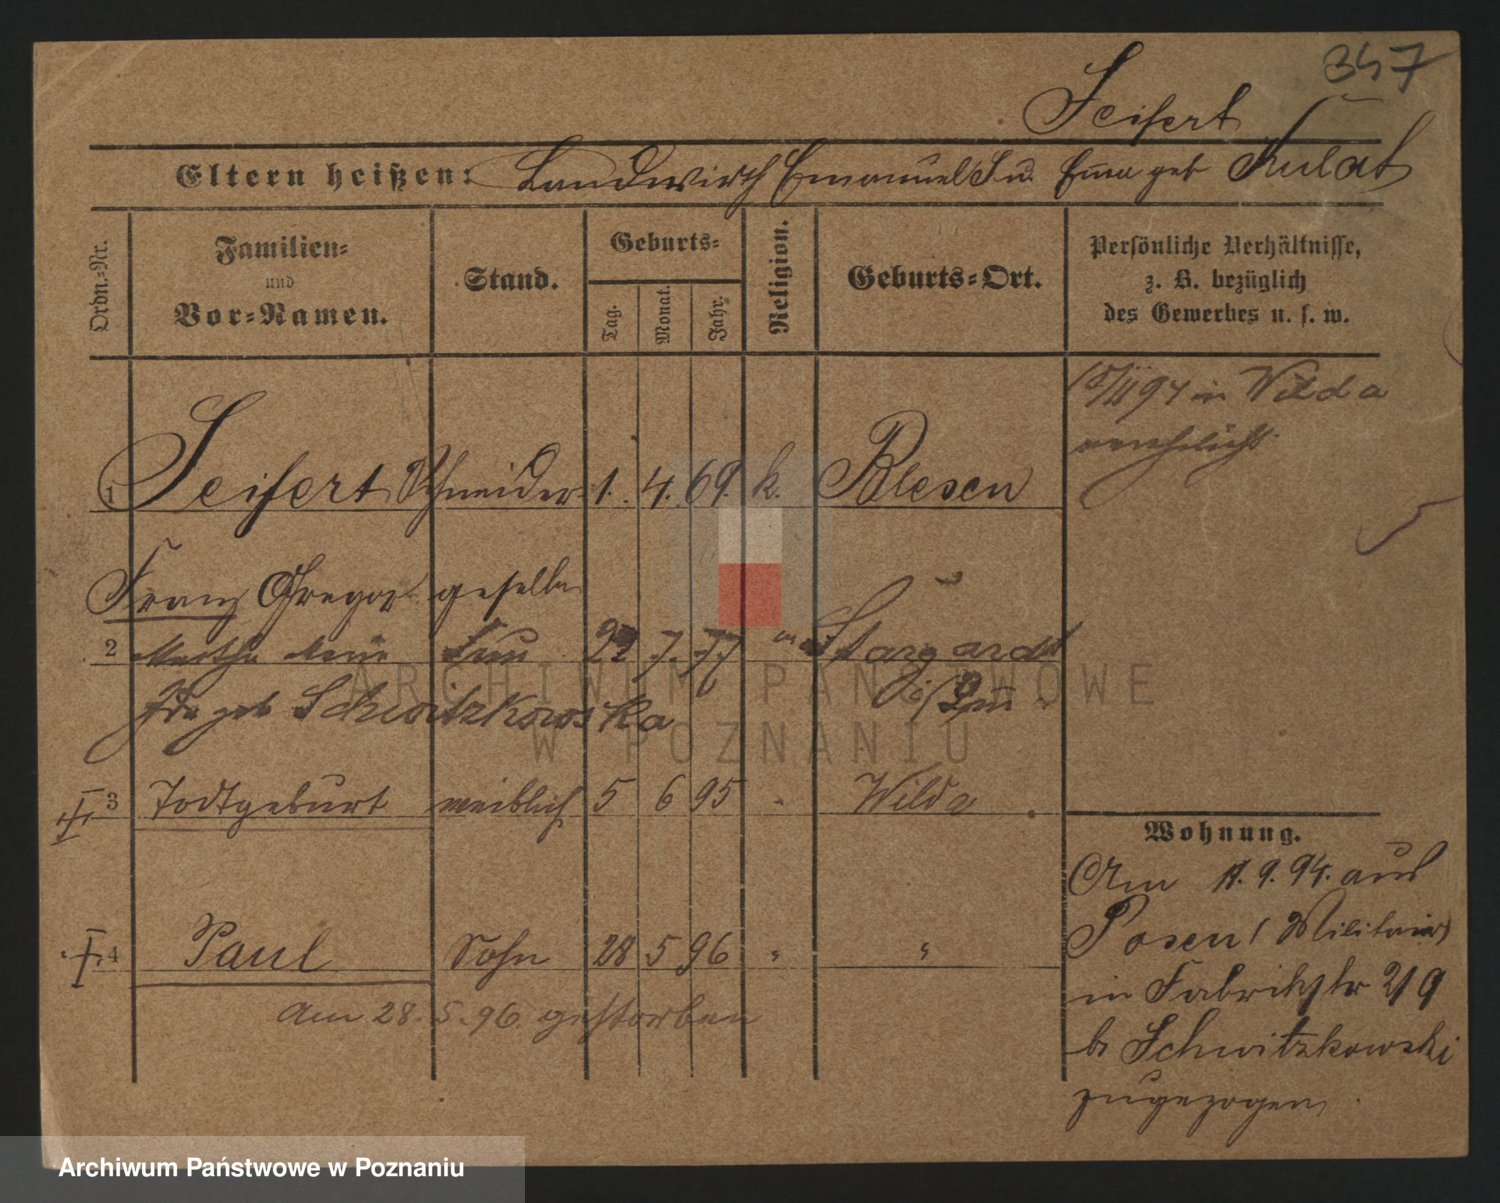 347
Seifert
Eltern heißen: Landwirth Emanuel S u. Emma geb Kulat
Ordn.-Nr.
Familien- und Vor-Namen.
Stand.
Geburts-
Tag.
Monat.
Jahr.
Religion.
Geburts-Ort.
Persönliche Verhältnisse,
z. B. bezüglich
des Gewerbes u. s. w.
15/II 94 in Wilda
verehelicht
1 Seifert Schneider- 1. 4. 69. k. Blesen
Franz Gregor geselle
2 Martha Marie Frau 22 7. 77 " Stargardt
Ida geb Schwitzkowska i/Pom
3 Todtgeburt weiblich 5 6 95 " Wilda
Wohnung.
Am 11.9.94. aus
Posen (Militair)
in Fabrikstr 29
b. Schwitzkowski
zugezogen.
4 Paul Sohn 28 5 96 " "
Am 28.5.96. gestorben
ARCHIWUM PAŃSTWOWE
W POZNANIU
Archiwum Państwowe w Poznaniu